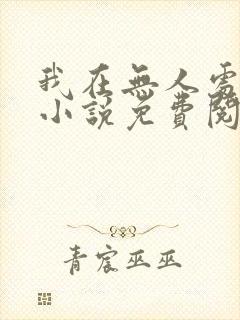 我在無人處
小說免費閱
青宸巫巫